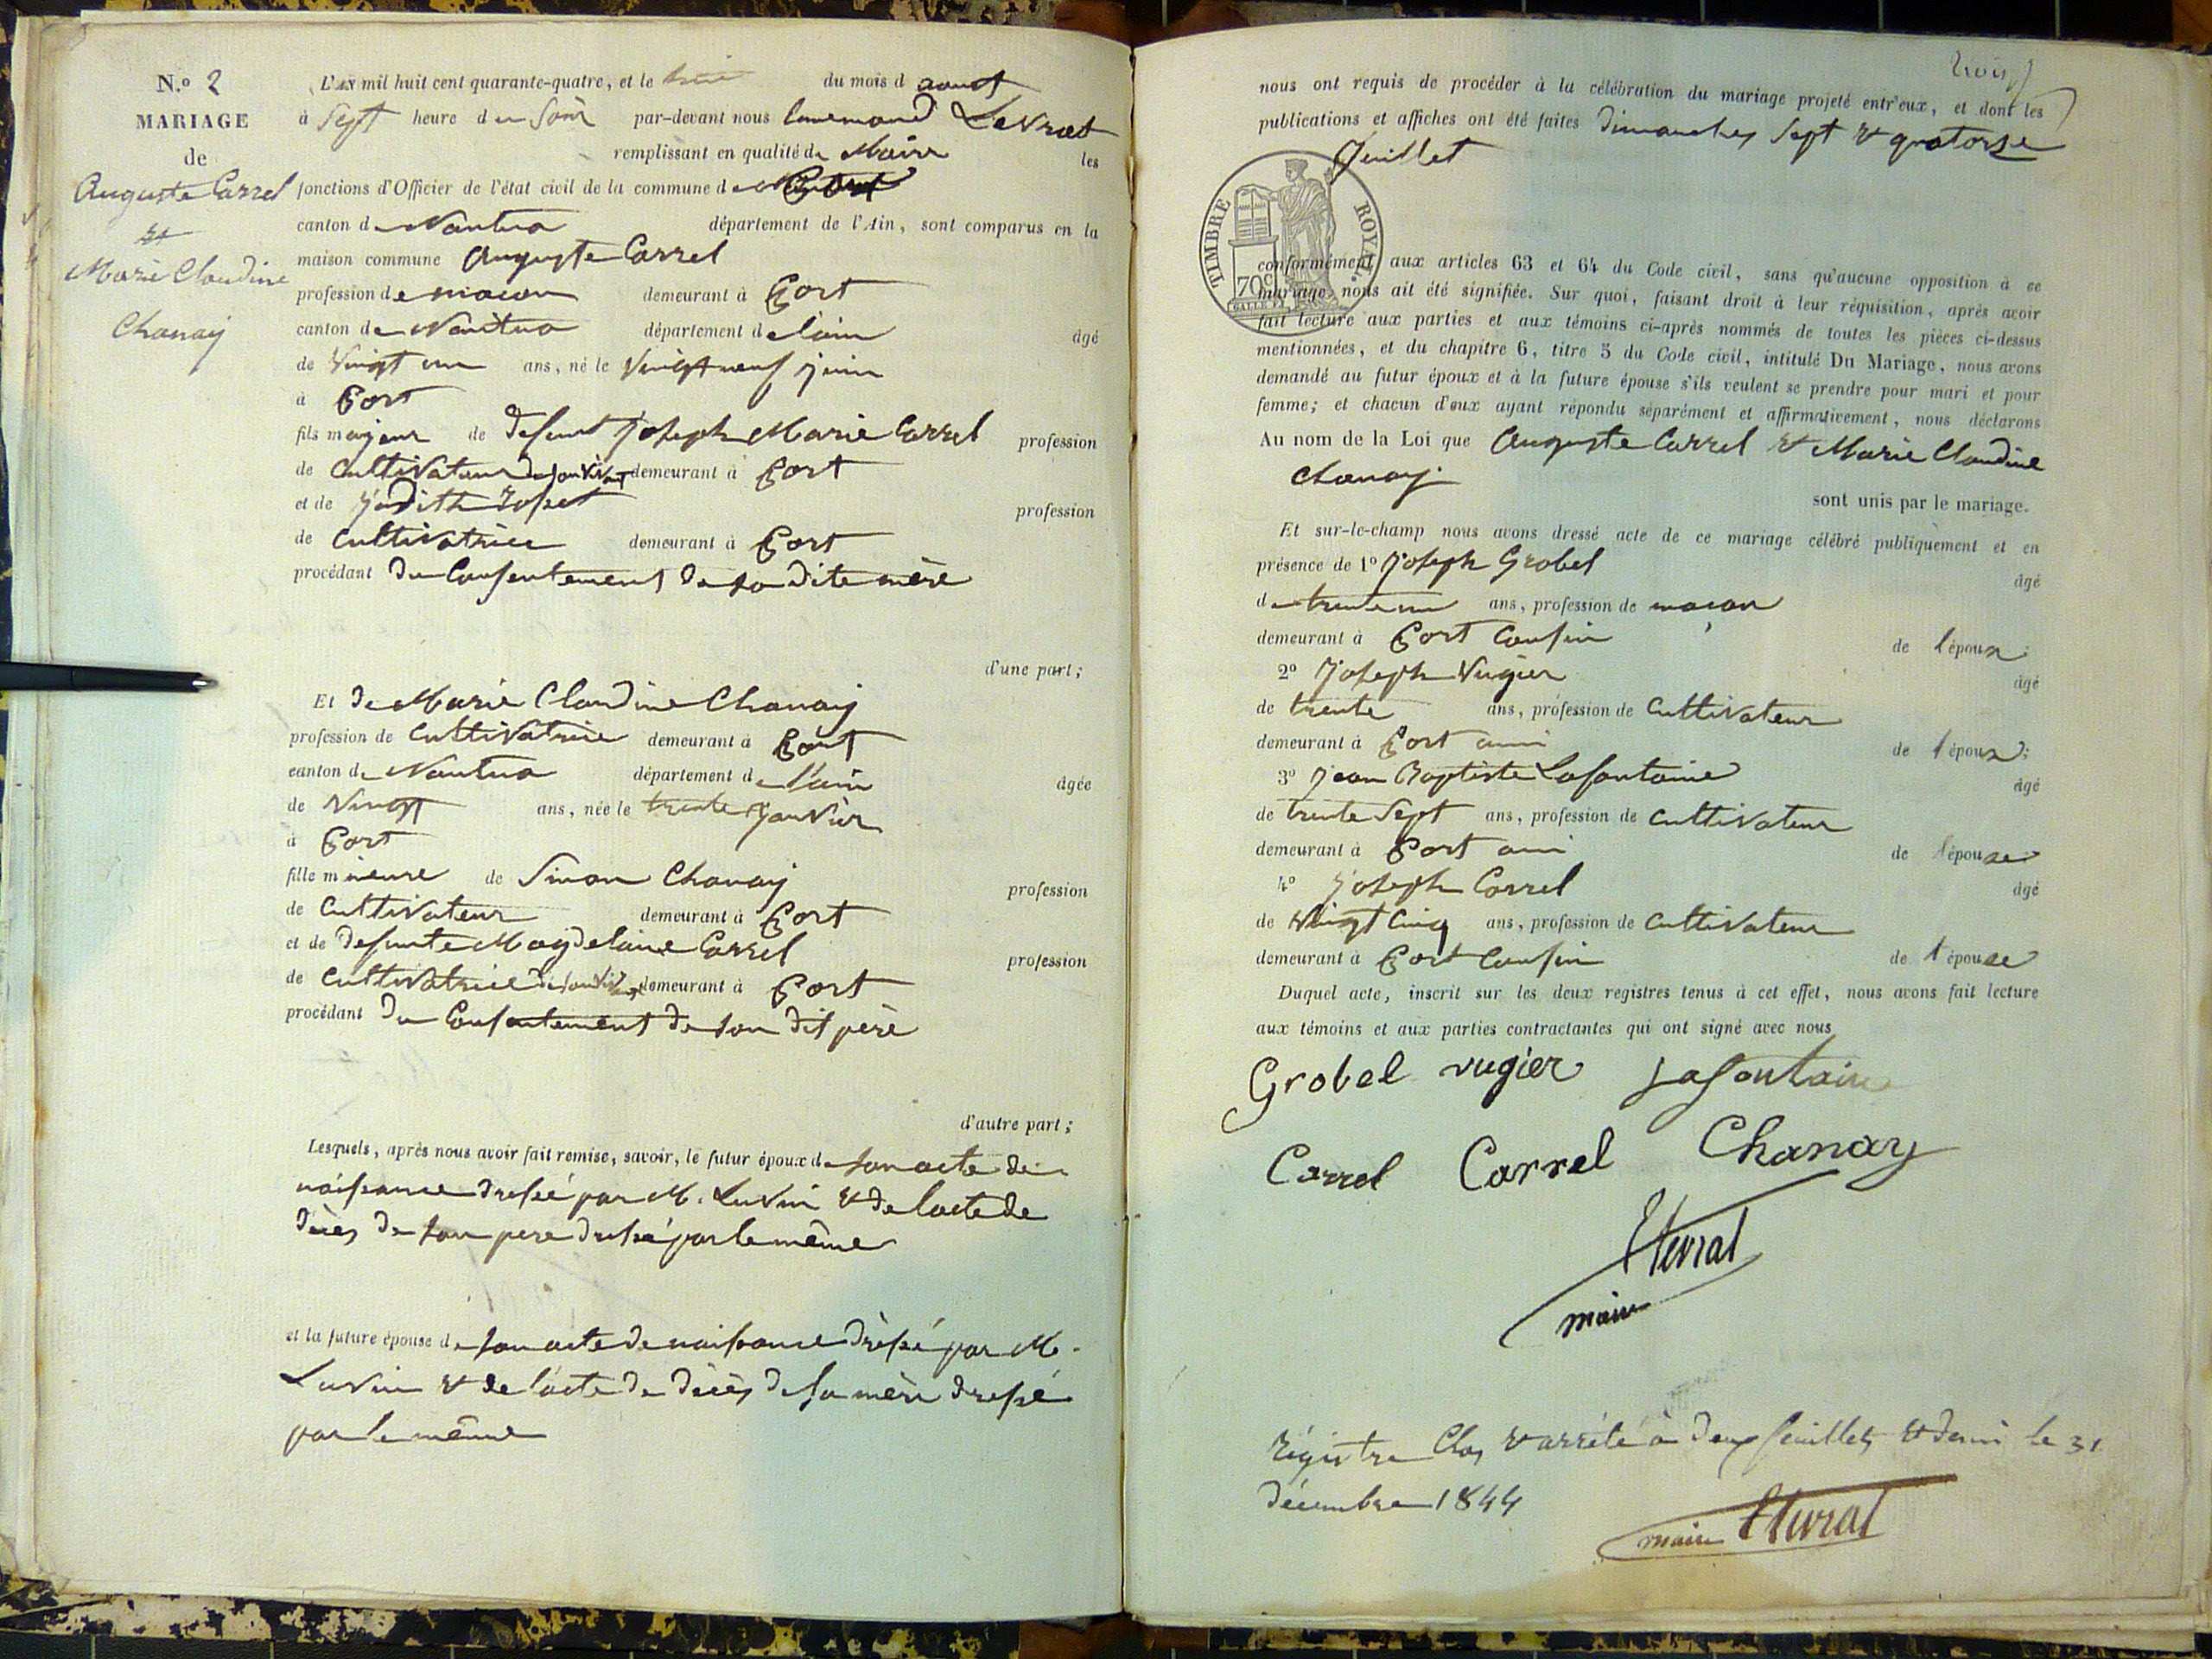 N.o 2
MARIAGE
de
Auguste Carrel
et
Marie Claudine
Chanay
L'an mil huit cent quarante-quatre, et le du mois d aoust
à Sept heure du Soir par-devant nous Levrat
remplissant en qualité de Maire les
fonctions d'Officier de l'état civil de la commune de Port
canton de Nantua département de l'Ain, sont comparus en la
maison commune Auguste Carrel
profession de macon demeurant à Port
canton de Nantua département de l'ain âgé
de Vingt un ans, né le Vingt neuf juin
à Port
fils majeur de defunt Joseph Marie Carrel profession
de Cultivateur de son vivant demeurant à Port
et de Judith profession
de Cultivatrice demeurant à Port
procédant du Consentement de sa dite mère
d'une part;
Et de Marie Claudine Chanay
profession de Cultivatrice demeurant à Port
canton de Nantua département de l'ain âgée
de Vingt ans, née le trente Janvier
à Port
fille mineure de Simon Chanay profession
de Cultivateur demeurant à Port
et de defunte Magdelaine Carrel profession
de Cultivatrice de son vivant demeurant à Port
procédant du Consentement de son dit père
d'autre part;
Lesquels, après nous avoir fait remise, savoir, le futur époux de son acte de
naissance dressé par M. Luvin & de l'acte de
décès de son pere dressé par le même
et la future épouse de son acte de naissance dressé par M.
Luvin & de l'acte de décès de sa mère dressé
par le même
trois
nous ont requis de procéder à la célébration du mariage projeté entr'eux, et dont les
publications et affiches ont été faites dimanches Sept & quatorze
Juillet
TIMBRE ROYAL
70c
conformément aux articles 63 et 64 du Code civil, sans qu'aucune opposition à ce
mariage nous ait été signifiée. Sur quoi, faisant droit à leur réquisition, après avoir
fait lecture aux parties et aux témoins ci-après nommés de toutes les pièces ci-dessus
mentionnées, et du chapitre 6, titre 5 du Code civil, intitulé Du Mariage, nous avons
demandé au futur époux et à la future épouse s'ils veulent se prendre pour mari et pour
femme; et chacun d'eux ayant répondu séparément et affirmativement, nous déclarons
Au nom de la Loi que Auguste Carrel & Marie Claudine
Chanay
sont unis par le mariage.
Et sur-le-champ nous avons dressé acte de ce mariage célébré publiquement et en
présence de 1o Joseph Grobel âgé
de trente un ans, profession de maçon
demeurant à Port Cousin de l'époux;
2o Joseph Vugier âgé
de trente ans, profession de Cultivateur
demeurant à Port ami de l'époux;
3o Jean Baptiste Lafontaine âgé
de trente Sept ans, profession de Cultivateur
demeurant à Port ami de l'épouse
4o Joseph Carrel âgé
de Vingt Cinq ans, profession de Cultivateur
demeurant à Port Cousin de l'épouse
Duquel acte, inscrit sur les deux registres tenus à cet effet, nous avons fait lecture
aux témoins et aux parties contractantes qui ont signé avec nous
Grobel vugier Lafontaine
Carrel Carrel Chanay
Levrat
maire
Régistre Clos & arrété à deux feuillets & demi le 31
décembre 1844
maire Levrat